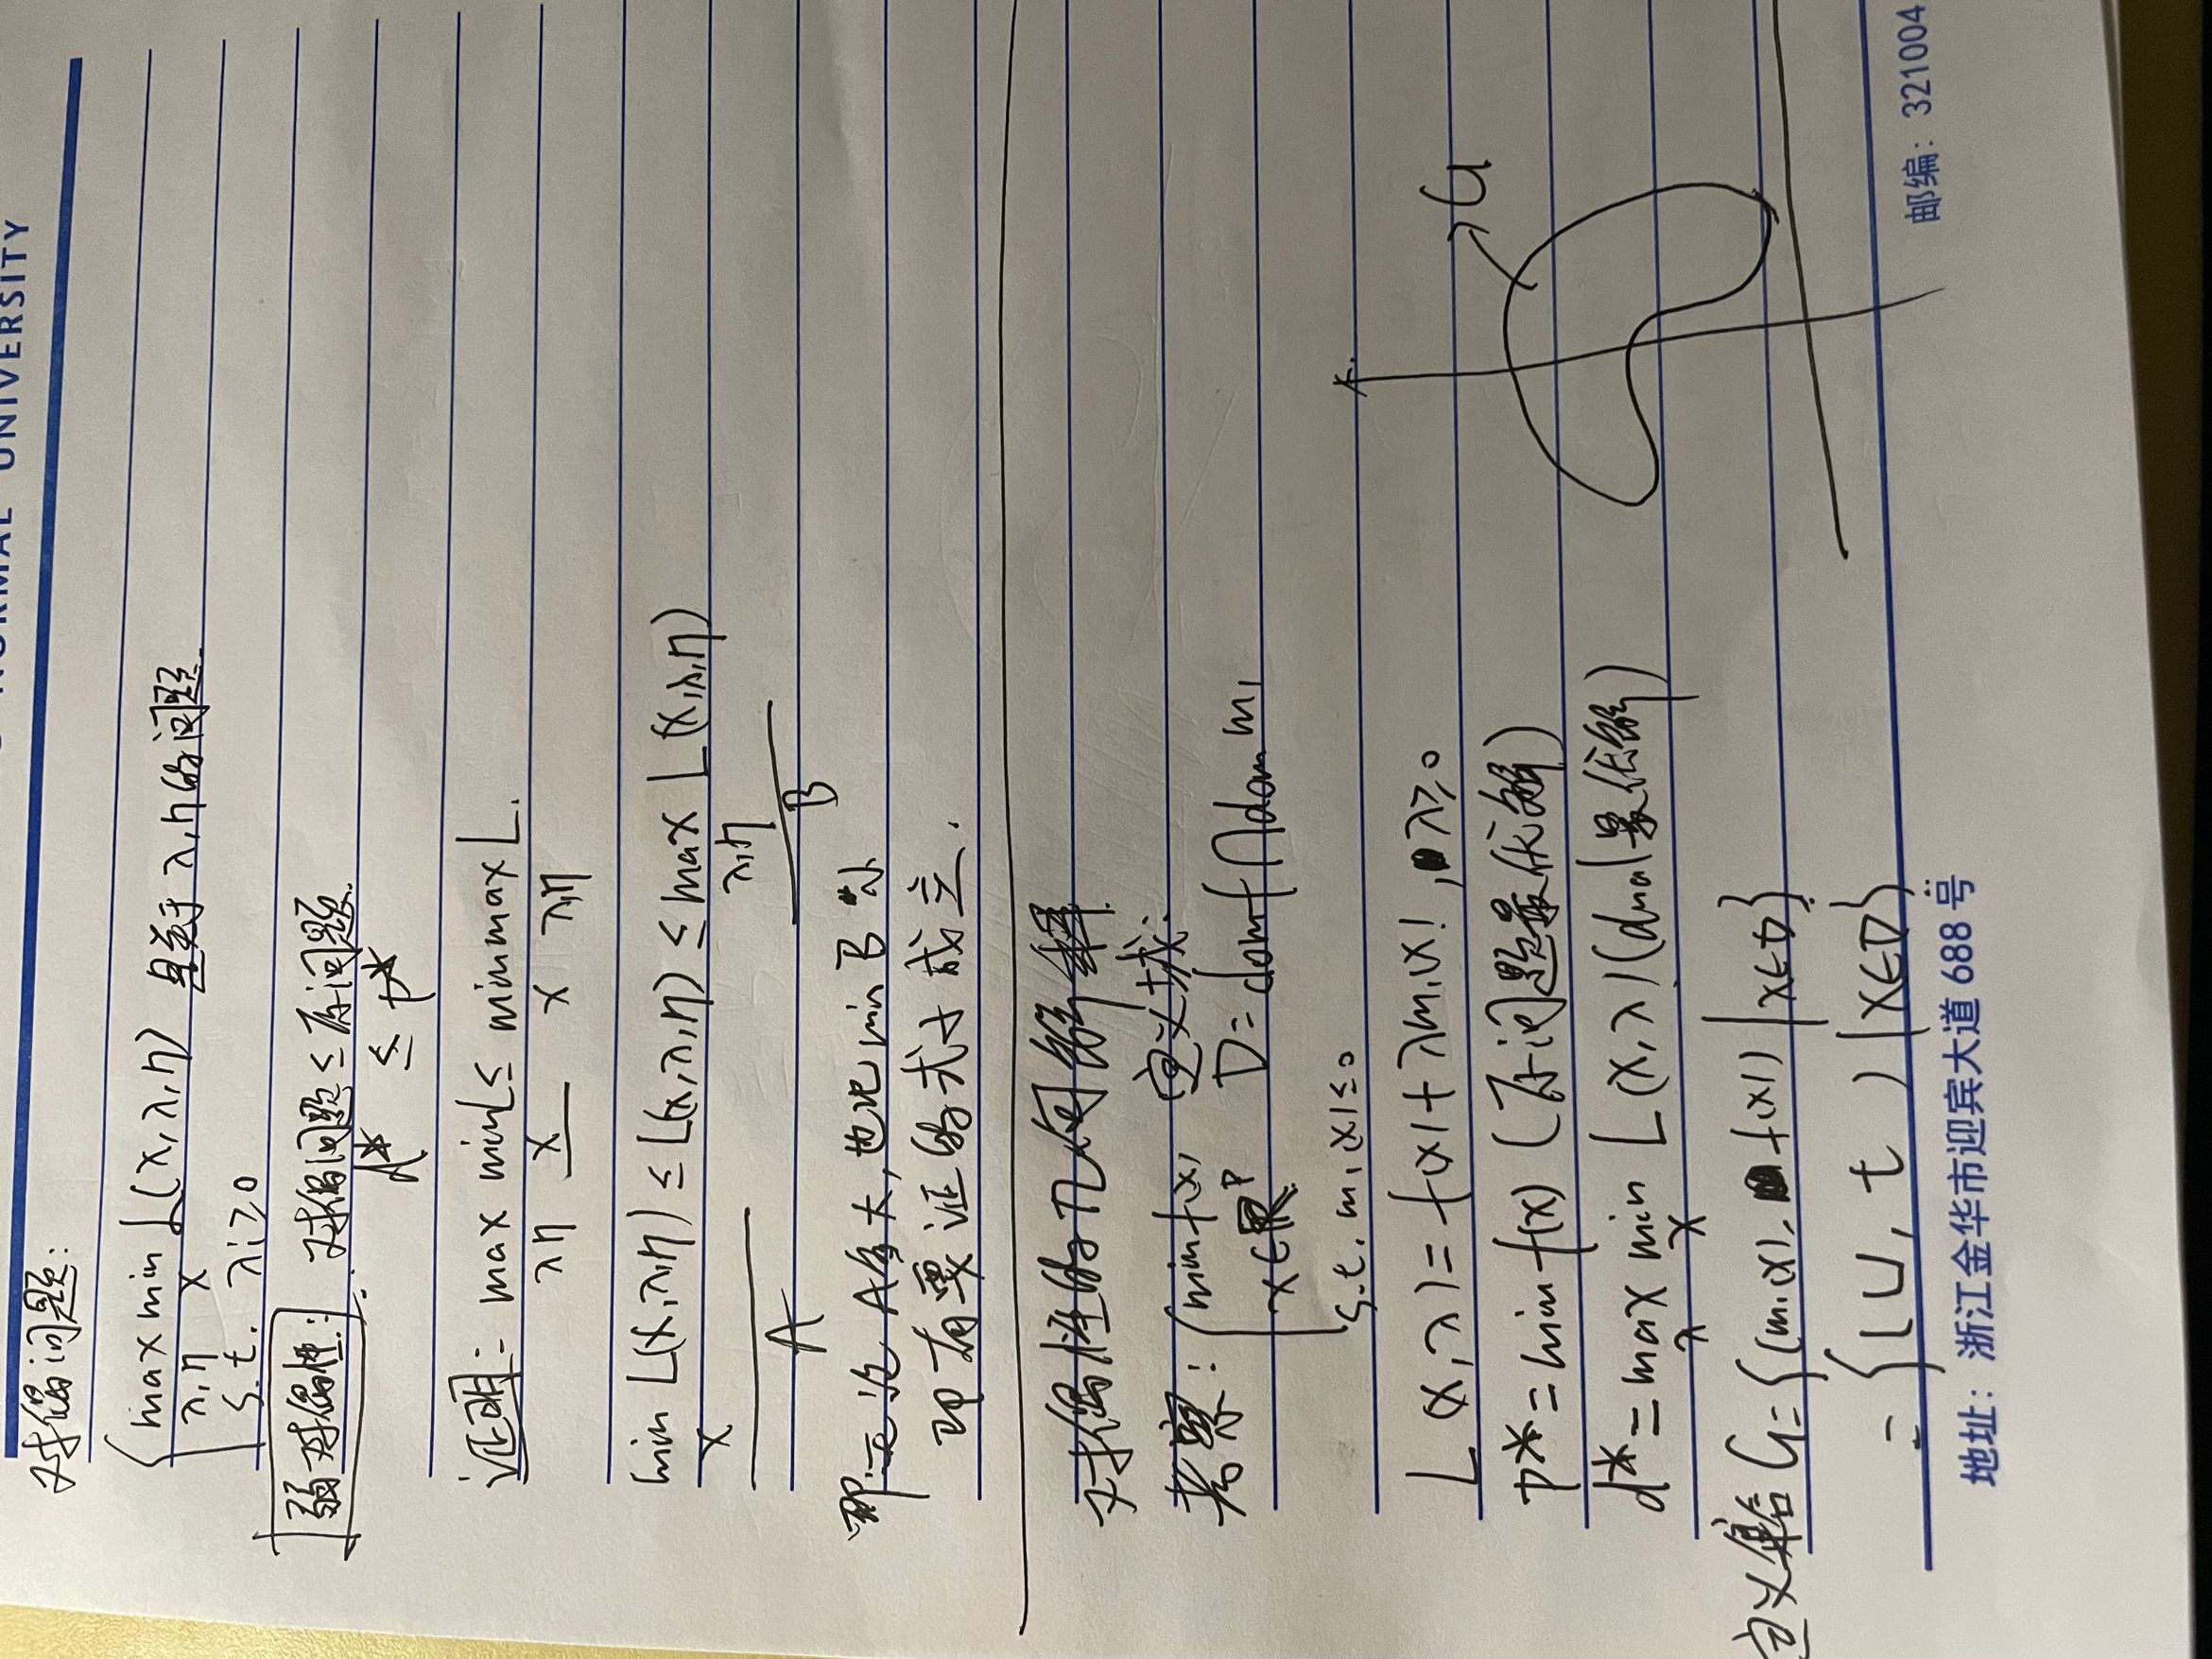 NORMAL UNIVERSITY
对偶问题:
max min L(x,λ,η) 是关于 λ,η的问题.
λ,η x
s.t. λi≥0
弱对偶性: 对偶问题≤原问题.
d* ≤ p*
证明: max min L ≤ min max L.
λη x x λ,η
min L(x,λ,η) ≤ L(x,λ,η) ≤ max L(x,λ,η)
x λ,η
A B
即无论 A多大,也比 min B 小
即有要证的式子成立.
对偶性的几何解释
考察: { min f(x) 定义域:
x∈ℝᵖ D=dom f ∩ dom m₁
s.t. m₁(x)≤0
L(x,λ)=f(x)+λm₁(x), λ≥0
G
p*=min f(x) (原问题最优解)
d*=max min L(x,λ)(dual最优解)
λ x
定义集合 G={(m₁(x), f(x)) | x∈D}
={(u, t) | x∈D}
地址: 浙江金华市迎宾大道 688 号
邮编: 321004